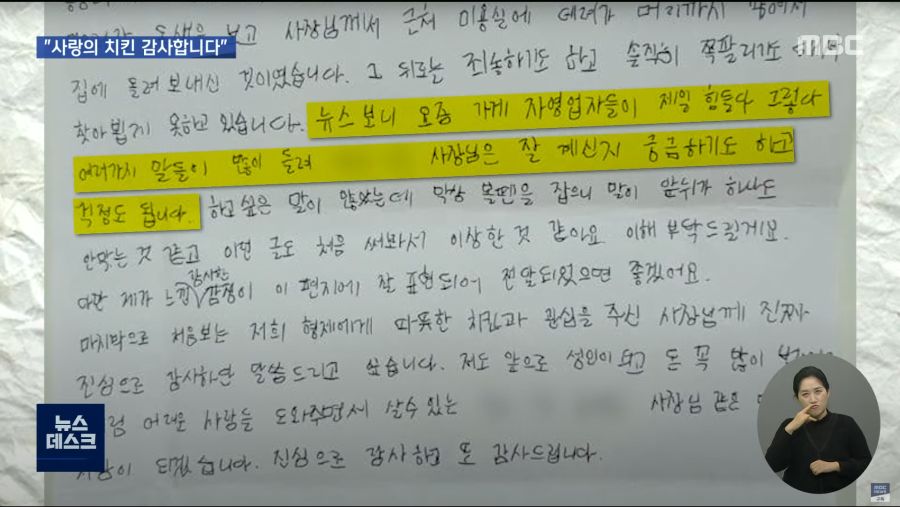 "사랑의 치킨 감사합니다"
MBC
동생을 보고 사장님께서 근처 미용실에 데려가 머리까지
집에 돌려 보내신 것이였습니다. 그 뒤로는 죄송하기도 하고 솔직히 쪽팔리기도
찾아뵙게 못하고 있습니다. 뉴스 보니 요즘 가게 자영업자들이 제일 힘들다 그렇다
여러가지 말들이 많이 들려 사장님은 잘 계신지 궁금하기도 하고
걱정도 됩니다. 하고 싶은 말이 많았는데 막상 볼펜을 잡으니 말이 앞뒤가 하나도
안맞는 것 같고 이런 글도 처음 써봐서 이상한 것 같아요 이해 부탁드릴게요.
다만 제가 느낀 감사한 감정이 이 편지에 잘 표현되어 전달되었으면 좋겠어요.
마지막으로 처음보는 저희 형제에게 따뜻한 치킨과 관심을 주신 사장님께 진짜
진심으로 감사하단 말씀 드리고 싶습니다. 저도 앞으로 성인이 되고 돈 꼭 많이
어려운 사람들 도와주면서 살수 있는 사장님 같은
되겠습니다. 진심으로 감사하고 또 감사드립니다.
뉴스
데스크
MBC
NEWS